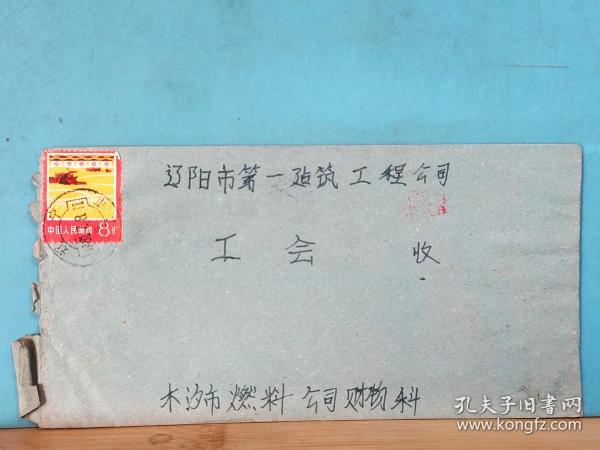 辽阳市第一建筑工程公司
中国人民邮政 8分
工会 收
木汐市燃料公司财物科
孔夫子旧书网
www.kongfz.com